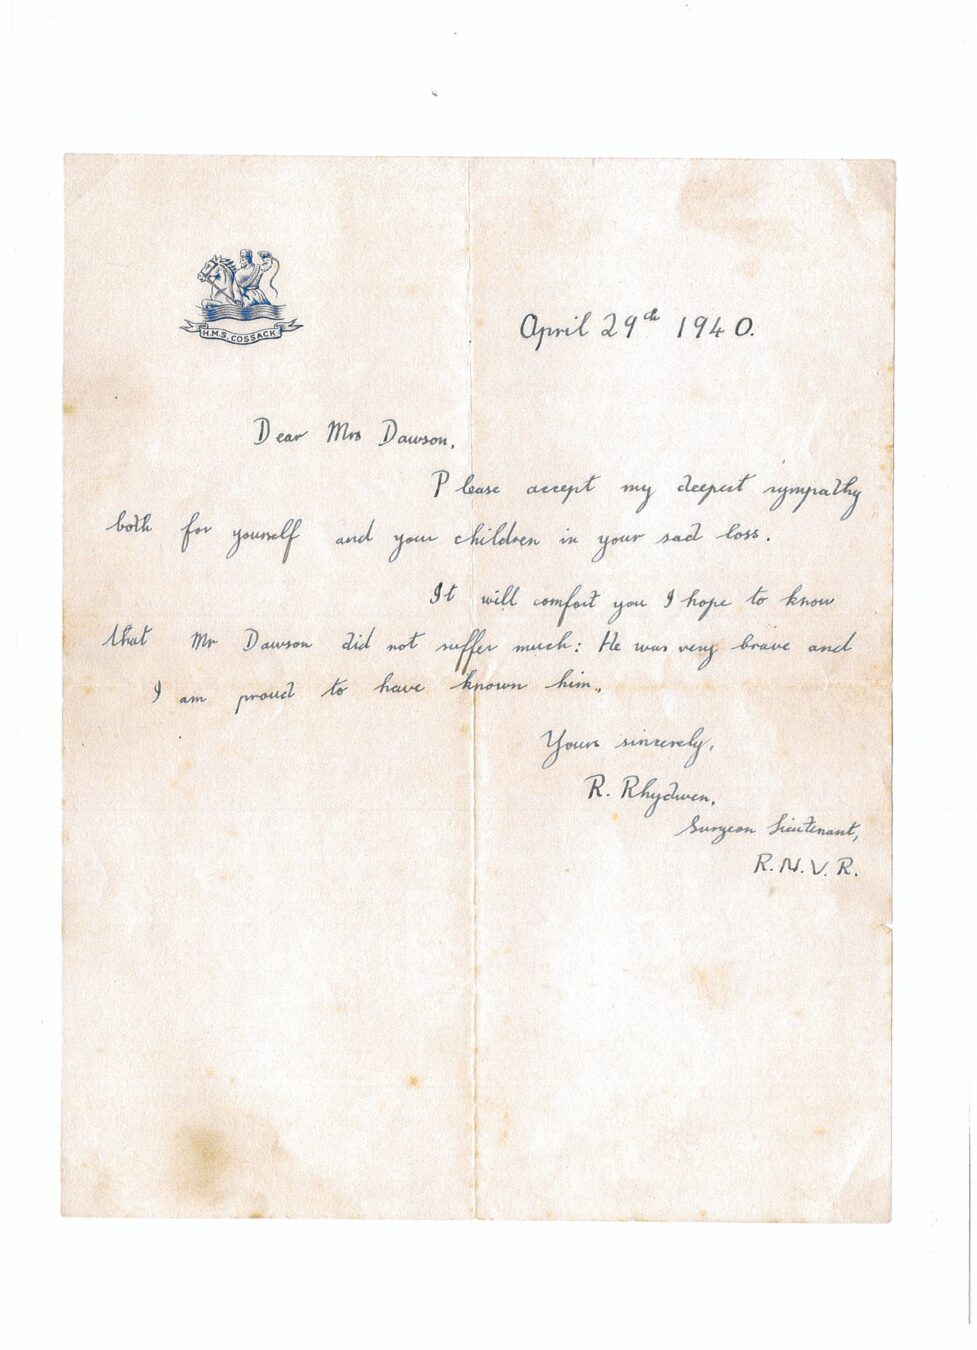 H.M.S. COSSACK
April 29th 1940.
Dear Mrs Dawson,
Please accept my deepest sympathy
both for yourself and your children in your sad loss.
It will comfort you I hope to know
that Mr Dawson did not suffer much: He was very brave and
I am proud to have known him.
Yours sincerely,
R. Rhydwen,
Surgeon Lieutenant,
R.N.V.R.